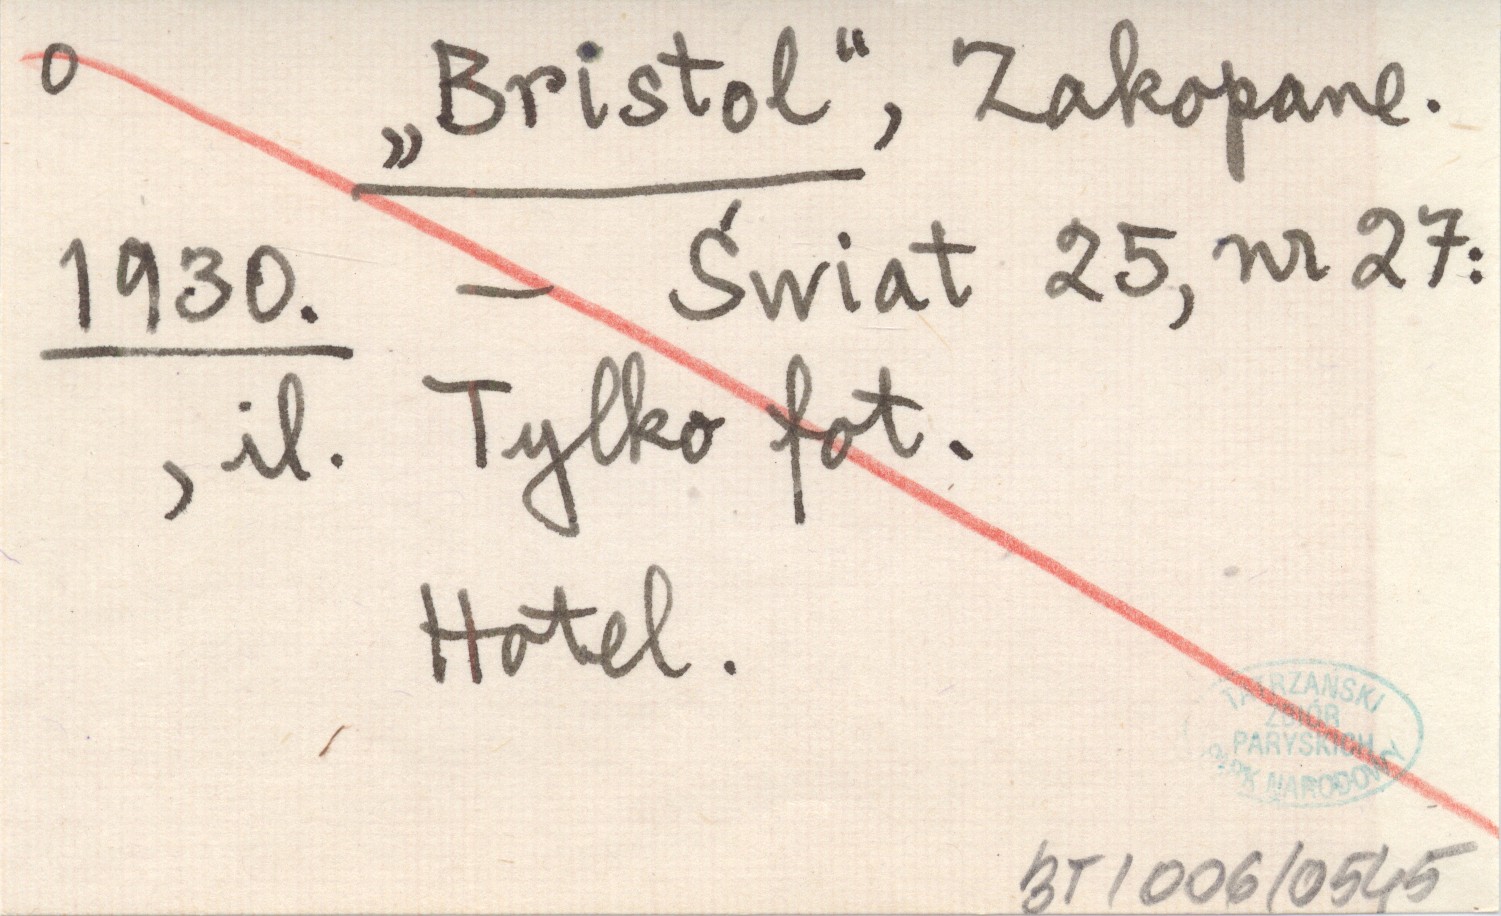 o „Bristol“, Zakopane.
1930. — Świat 25, nr 27:
, il. Tylko fot.
Hotel.
TATRZAŃSKI
ZBIÓR
PARYSKICH
PARK NARODOWY
BT/006/0545